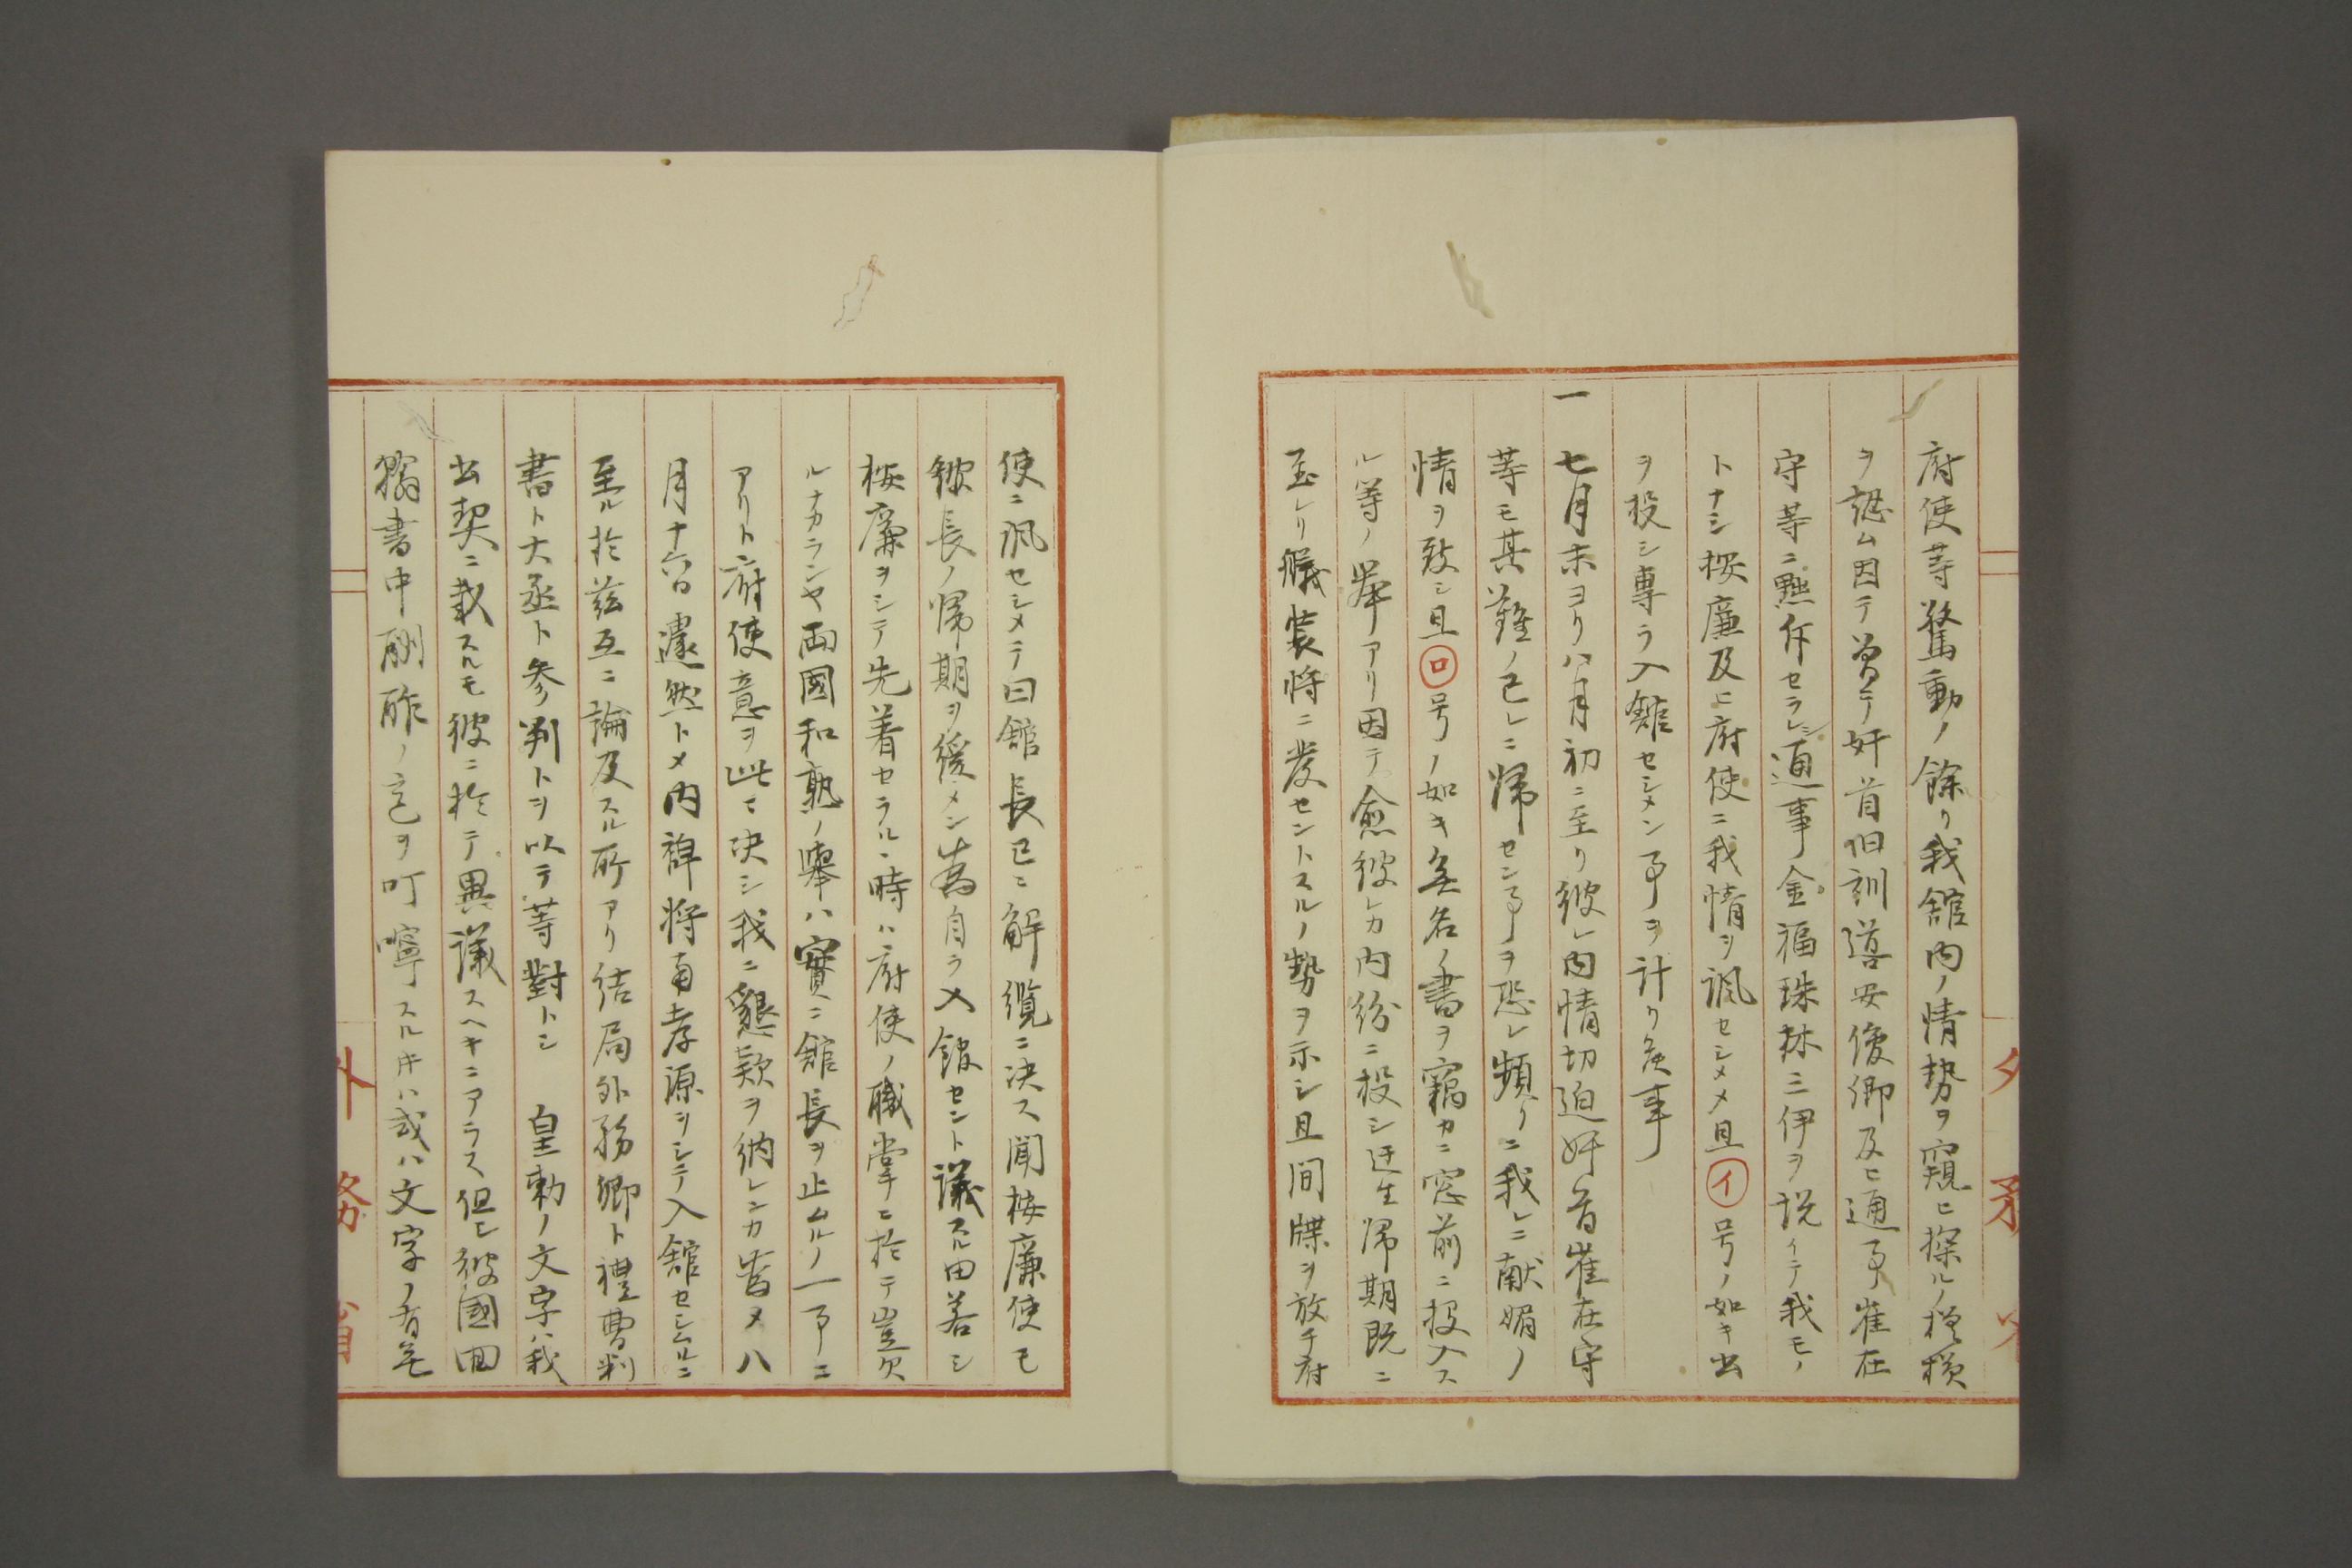 府使等驚動ノ餘リ我舘内ノ情勢ヲ窺ヒ探ルノ摸様
ヲ認ム因テ曽テ奸首旧訓導安俊卿及ヒ通事崔在
守等ニ黜斥セラレシ通事金福珠林三伊ヲ説イテ我モノ
トナシ按廉及ヒ府使ニ我情ヲ諷セシメ且㋑号ノ如キ書
ヲ投シ専ラ入舘セシメン事ヲ計リ候事
一 七月末ヨリ八月初ニ至リ彼レ内情切迫奸首崔在守
等モ其難ノ己レニ帰センヿヲ恐レ頻リニ我レニ献媚ノ
情ヲ致シ且㋺号ノ如キ無名ノ書ヲ竊カニ窓前ニ投入ス
ル等ノ挙アリ因テ愈彼レカ内紛ニ投シ迂生帰期既ニ
至レリ艤装将ニ發セントスルノ勢ヲ示シ且間牒ヲ放チ府
使ニ諷セシメテ曰舘長已ニ解纜ニ决ス聞按廉使モ
舘長ノ帰期ヲ緩メン為自ラ入舘セント議スル由若シ
按廉ヲシテ先着セラルヽ時ハ府使ノ職掌ニ於テ豈欠
ルナカランヤ両國和熟ノ舉ハ實ニ舘長ヲ止ムルノ一ヿニ
アリト府使意ヲ此ニ决シ我ニ懇款ヲ納レンカ為メ八
月十六日遽然トメ内裨将南孝源ヲシテ入舘セシムルニ
至ル於茲互ニ論及スル所アリ結局外務卿ト禮曹判
書ト大丞ト参判トヲ以テ等對トシ 皇勅ノ文字ハ我
書契ニ載スルモ彼ニ於テ異議スヘキニアラス但シ彼國回
翰書中酬酢ノ意ヲ叮嚀スル時ハ或ハ文字ノ有無
外務省